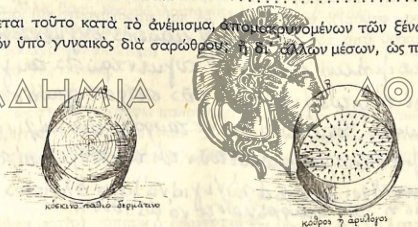 εται τοῦτο κατὰ τὸ ἀνέμισμα, ἀπομακρυνομένων τῶν ξένω
ὸν ὑπὸ γυναικὸς διὰ σαρώθρου; ἢ δι' ἄλλων μέσων, ὡς π
ΑΔΗΜΙΑ ΑΘ
κόσκινο παλιὸ δερμάτινο
κόθρος ἢ ἀρυλόγος